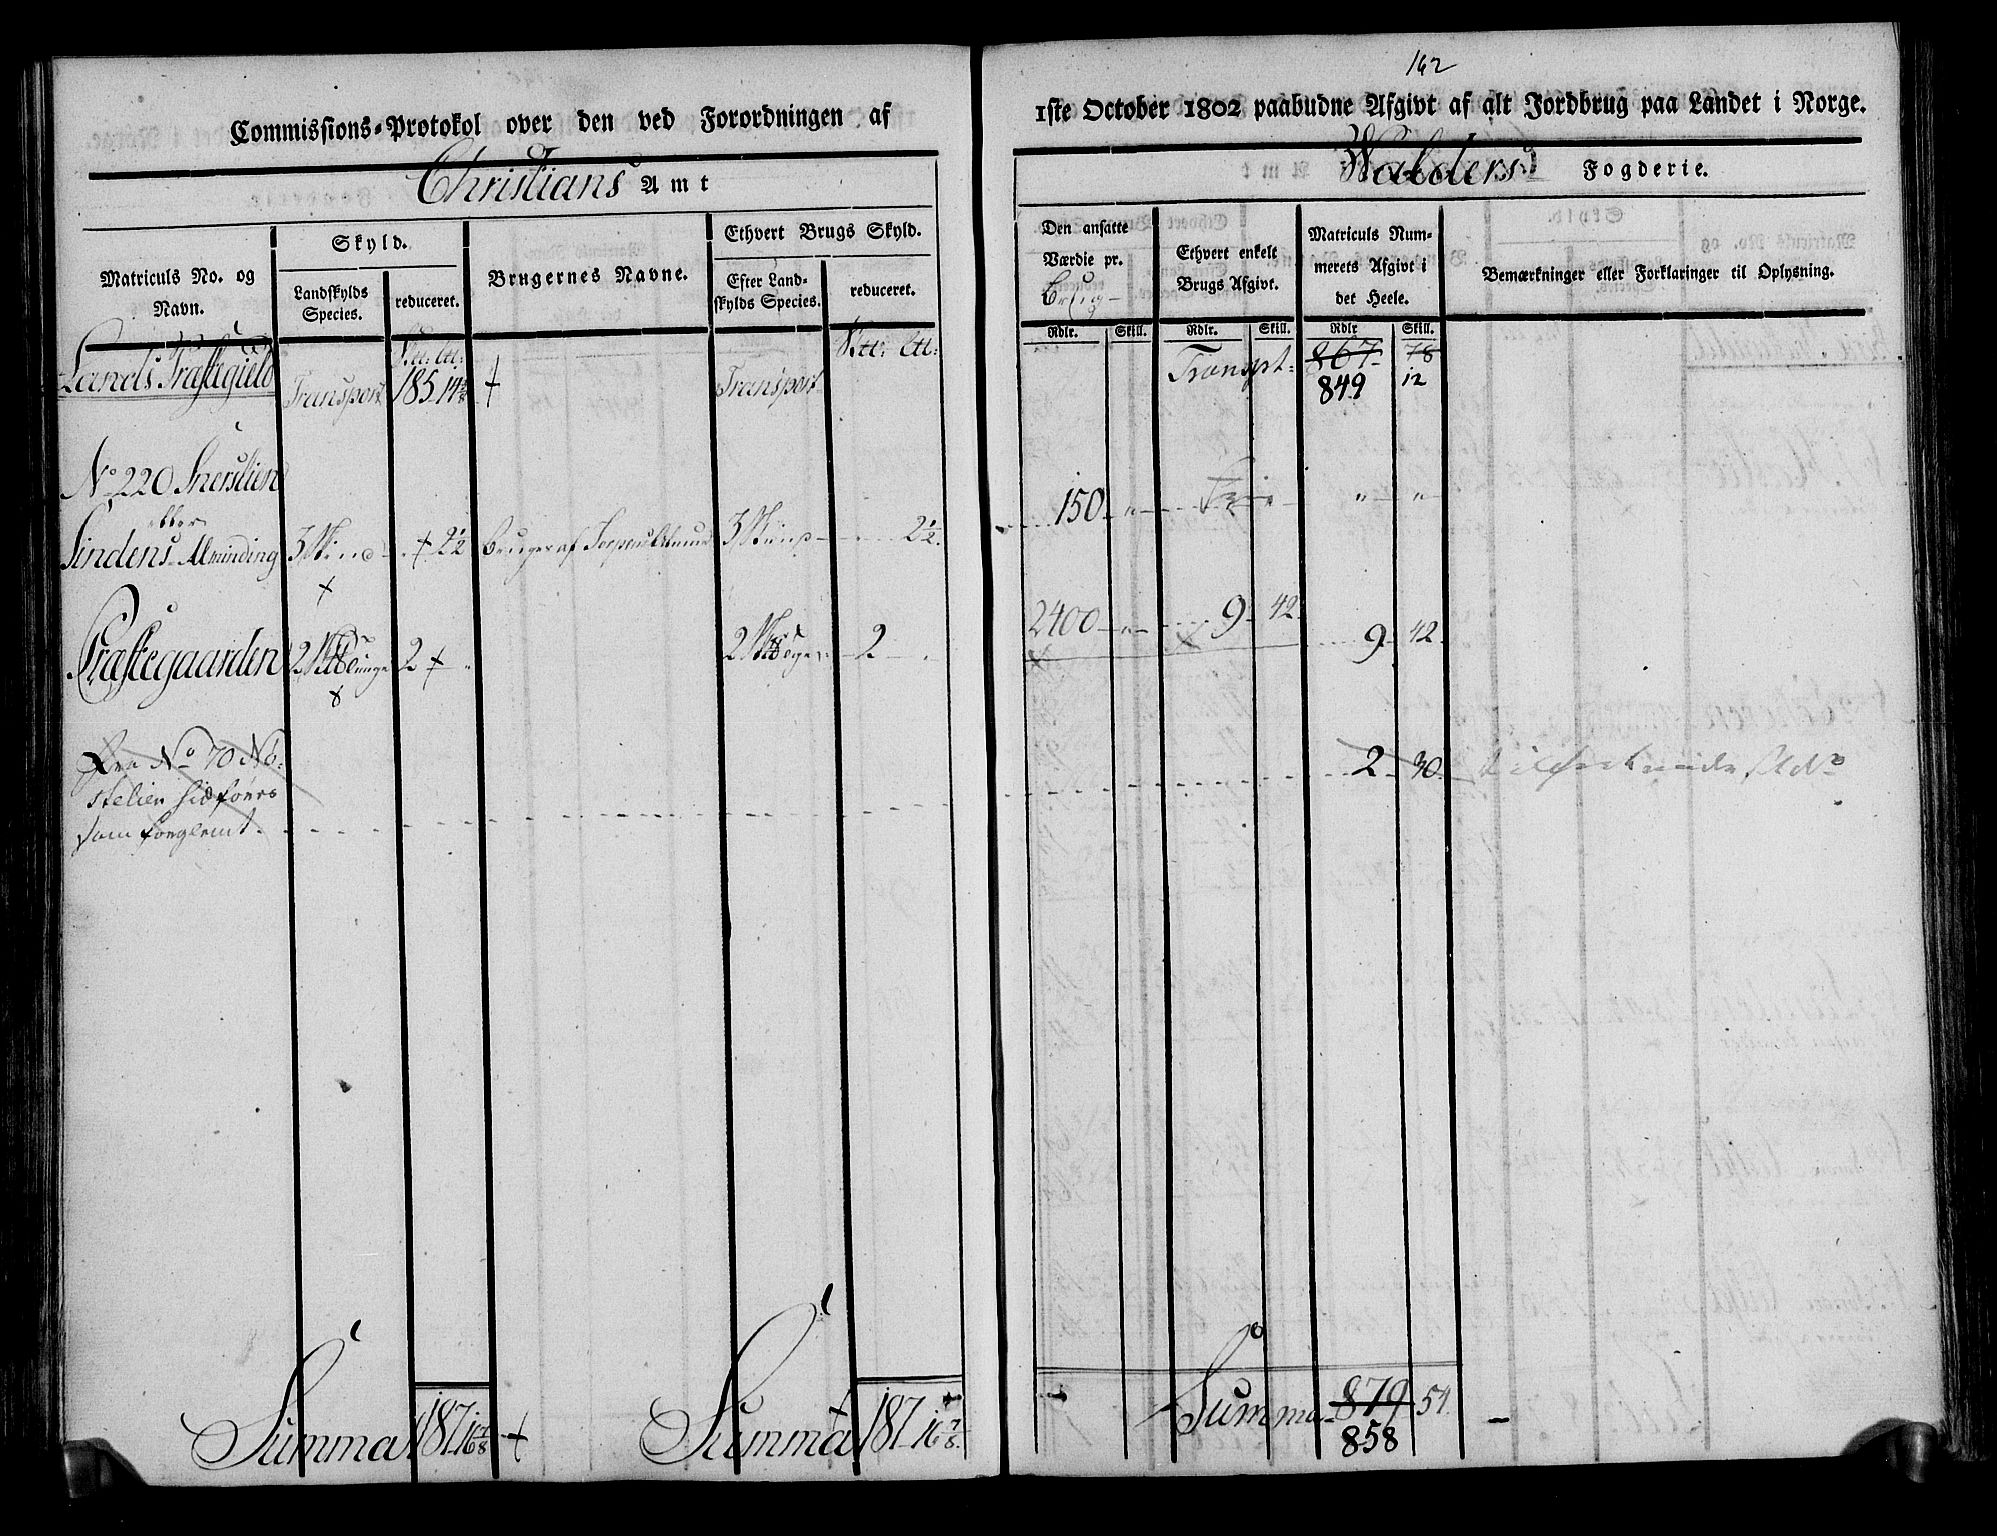 Commissions-Protokol over den ved Forordningen af
Christians Amt
Matriculs No. og Navn.
Skyld.
Landskylds Species.
reduceret.
Brugernes Navne.
Ethvert Brugs Skyld.
Efter Landskylds Species.
reduceret.
Lands Præstegield
Transport
185 14
Transport
No 220 Snerslien
eller
Lindens Alminding
3 Skind
2½
Bruges af
3 Skind
2½.
Præstegaarden
2
2
2
2
Fra No 70
som forglemt.
Summa 187 16⅞
Summa 187 16⅞
162
1ste October 1802 paabudne Afgivt af alt Jordbrug paa Landet i Norge.
Walders Fogderie.
Den ansatte Værdie pr.
Brug
Ethvert enkelt Brugs Afgivt.
Matriculs Nummerets Afgivt i det Heele.
Bemærkninger eller Forklaringer til Oplysning.
Rdlr. Skill. Rdlr. Skill. Rdlr Skill.
Transpt: 867 78
849 12
150 " Frie " "
2400 " 9 42
9 42
2 30
Summa 879 54
858